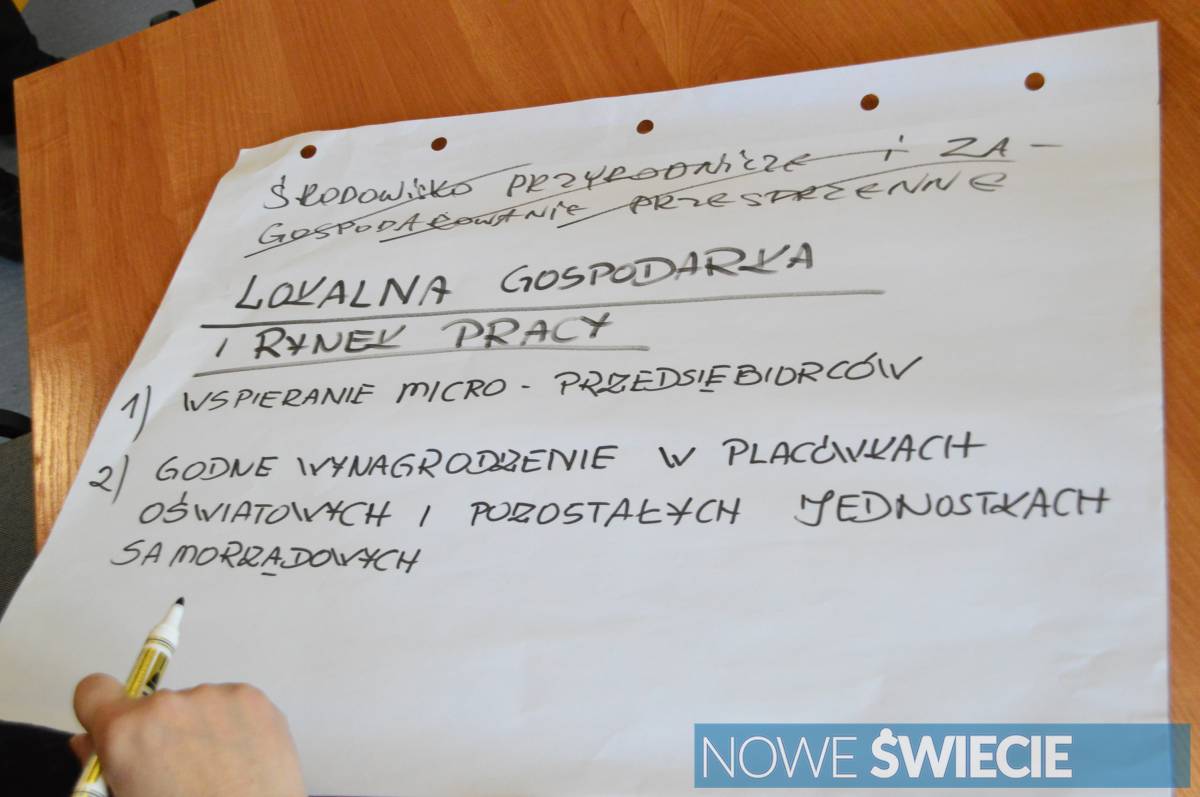 ŚRODOWISKO PRZYRODNICZE I ZA-
GOSPODAROWANIE PRZESTRZENNE
LOKALNA GOSPODARKA
I RYNEK PRACY
1) WSPIERANIE MICRO - PRZEDSIĘBIORCÓW
2) GODNE WYNAGRODZENIE W PLACÓWKACH
OŚWIATOWYCH I POZOSTAŁYCH JEDNOSTKACH
SAMORZĄDOWYCH
NOWE ŚWIECIE